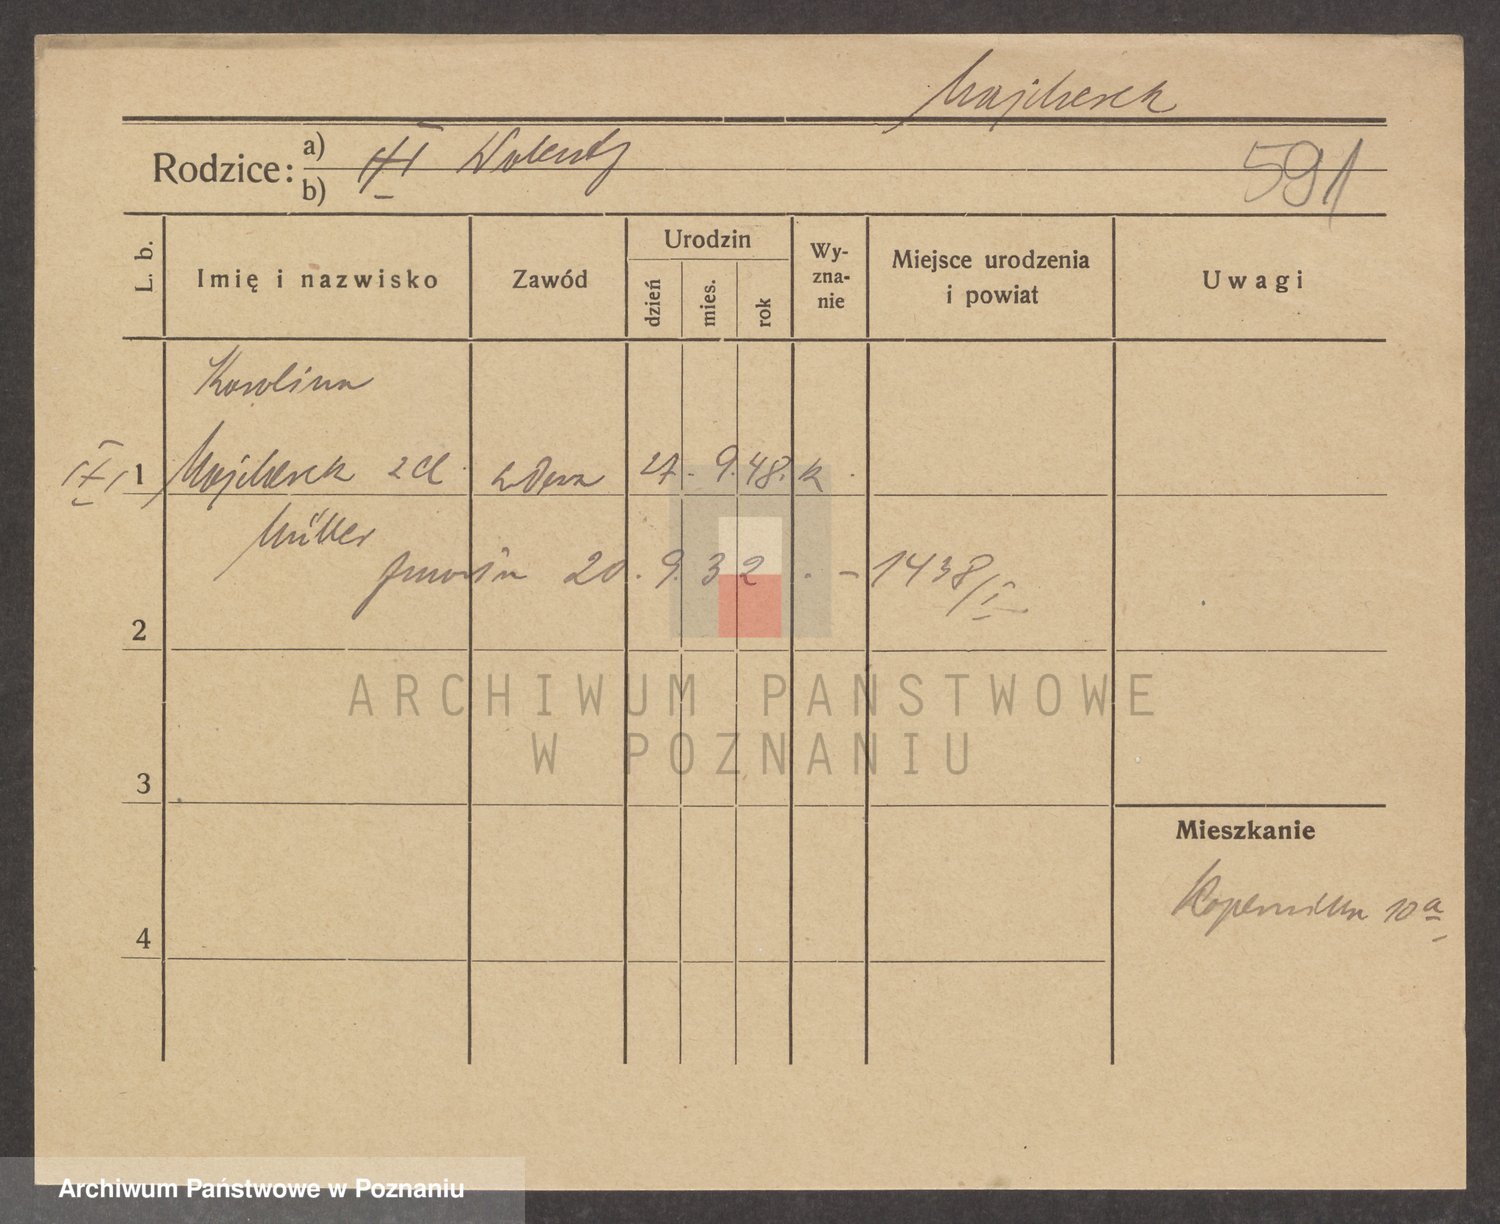 Majcherek
Rodzice: a) Walenty
b)
591
L. b.
Imię i nazwisko
Zawód
Urodzin
dzień
mies.
rok
Wy-
zna-
nie
Miejsce urodzenia
i powiat
Uwagi
Karolina
1 Majcherek z d. wdowa 27. 9. 48. k.
Müller
20. 9. 32. - 1438/I
2
3
4
Mieszkanie
Kopernika 10a
ARCHIWUM PAŃSTWOWE
W POZNANIU
Archiwum Państwowe w Poznaniu